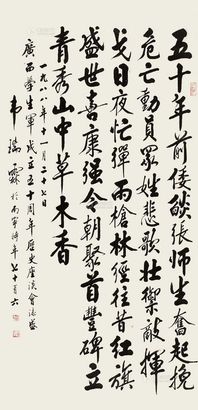 五十年前倭燄張師生奮起挽
危亡動員眾姓悲歌壯禦敵揮
戈日夜忙彈雨槍林經往昔紅旗
盛世喜康强今朝聚首豐碑立
青秀山中草木香
一九八八年十一月二十七日
廣西學生軍成立五十周年歷史座談會誌盛
韦瑞霖於南寧時年七十有六